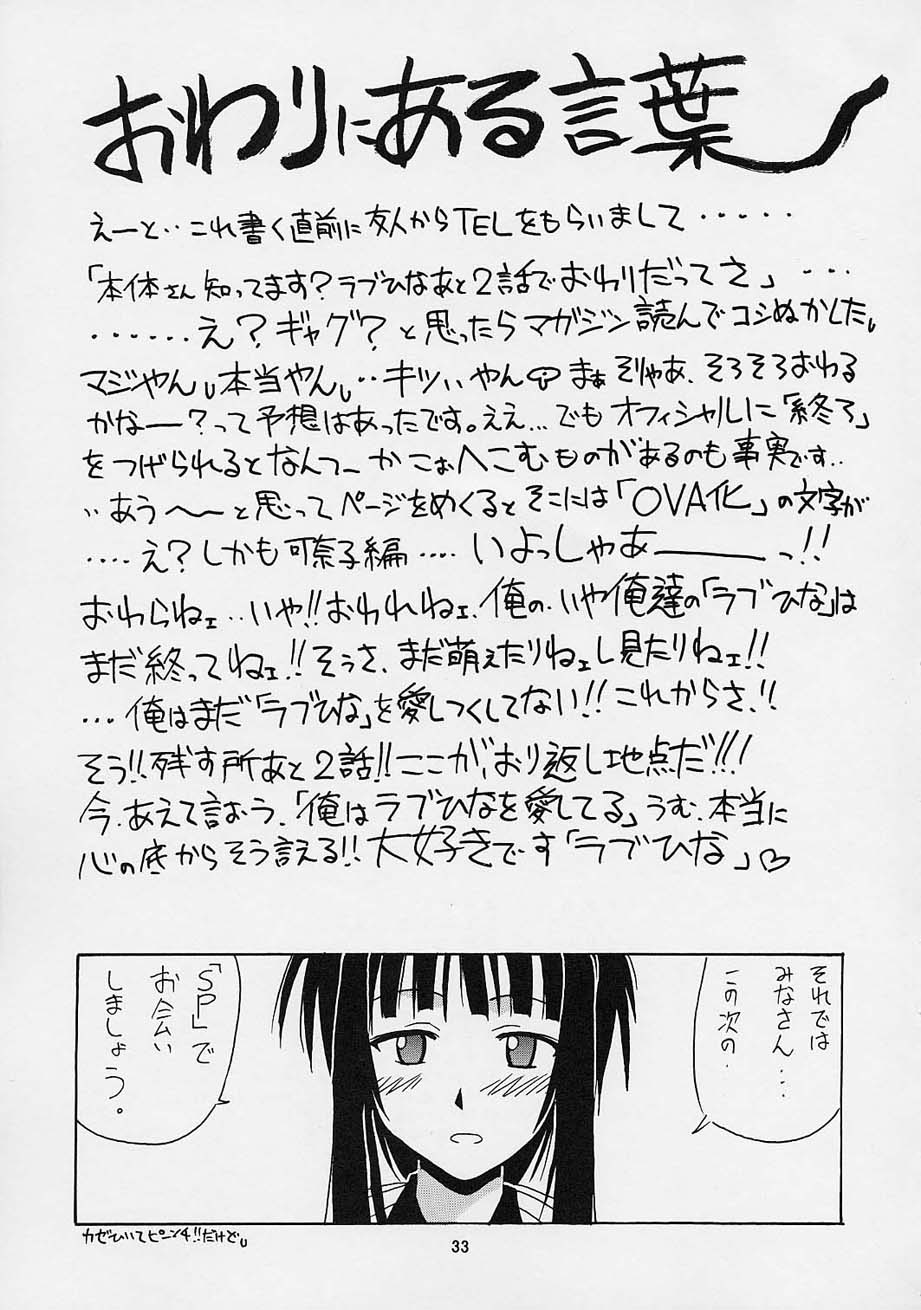 おわりにある言葉
えーと‥これ書く直前に友人からTELをもらいまして・・・・・
「本体さん知ってます?ラブひなあと2話でおわりだってさ」・・・・
・・・・・・え?ギャグ?と思ったらマガジン読んでコシぬかした。
マジやん。本当やん。‥キツいやん まぁそりゃあ、そろそろおわる
かなー?って予想はあったです。ええ…でもオフィシャルに「終了」
をつげられるとなんつーかこぉへこむものがあるのも事実です‥
‥あう〜〜と思ってページをめくるとそこには「OVA化」の文字が
・・・・え?しかも可奈子編・・・・いよっしゃあーーっ!!
おわらねェ‥いや!!おわれねェ、俺の、いや俺達の「ラブひな」は
まだ終ってねェ!!そうさ、まだ萌えたりねェし見たりねェ!!
・・・俺はまだ「ラブひな」を愛しつくしてない!!これからさ!!
そう!!残す所あと2話!!ここが、おり返し地点だ!!!
今、あえて言おう、「俺はラブひなを愛してる」うむ、本当に
心の底からそう言える!!大好きです「ラブひな」♡
それでは
みなさん…
この次の
「SP」で
お会い
しましょう。
カゼひいてピンチ!!だけど。
33